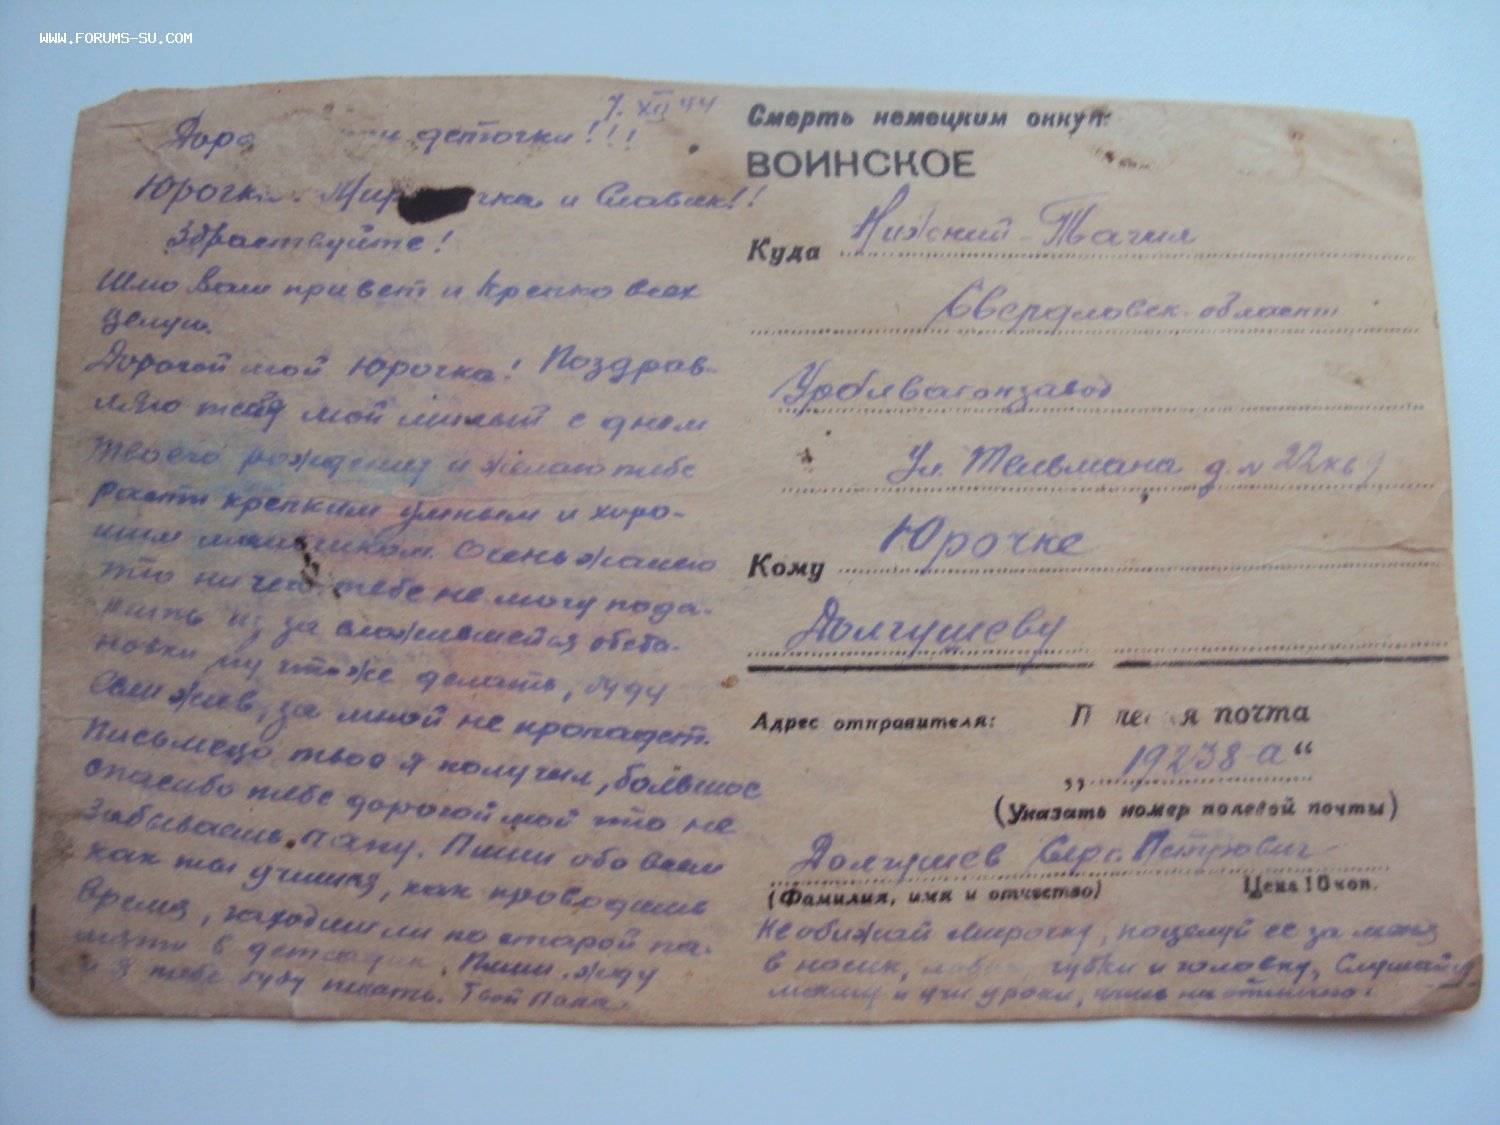 WWW.FORUMS-SU.COM
7. XII 44
деточки!!!
Юрочка. и Славик!!
Здраствуйте!
Шлю Вам привет и крепко всех
целую.
Дорогой мой Юрочка! Поздрав-
ляю тебя мой милый с днем
твоего рождения и желаю тебе
расти крепким умным и хоро-
шим мальчиком. Очень жалею
что ничего тебе не могу пода-
рить из за сложившейся обста-
новки ну что же делать, буду
сам жив, за мной не пропадет.
Письмецо твое я получил, большое
спасибо тебе дорогой мой что не
забываешь папу. Пиши обо всем
как ты учишся, как проводишь
время, заходишь ли по старой па-
мяти в детсадик. Пиши. жду
и я тебе буду писать. Твой Папа.
Смерть немецким оккуп
ВОИНСКОЕ
Куда Нижний-Тагил
Свердловск. област
Уралвагонзавод
Ул. Тельмана д. № 22 кв 9
Кому Юрочке
Долгушеву
Адрес отправителя: П ле я почта
„19238-а“
(Указать номер полевой почты)
Долгушев Серг. Петрович
(Фамилия, имя и отчество) Цена 10 коп.
Не обижай Мирочку, поцелуй ее за меня
в носик, губки и головку, Слушайся
мамку и учи уроки, учись на отлично.